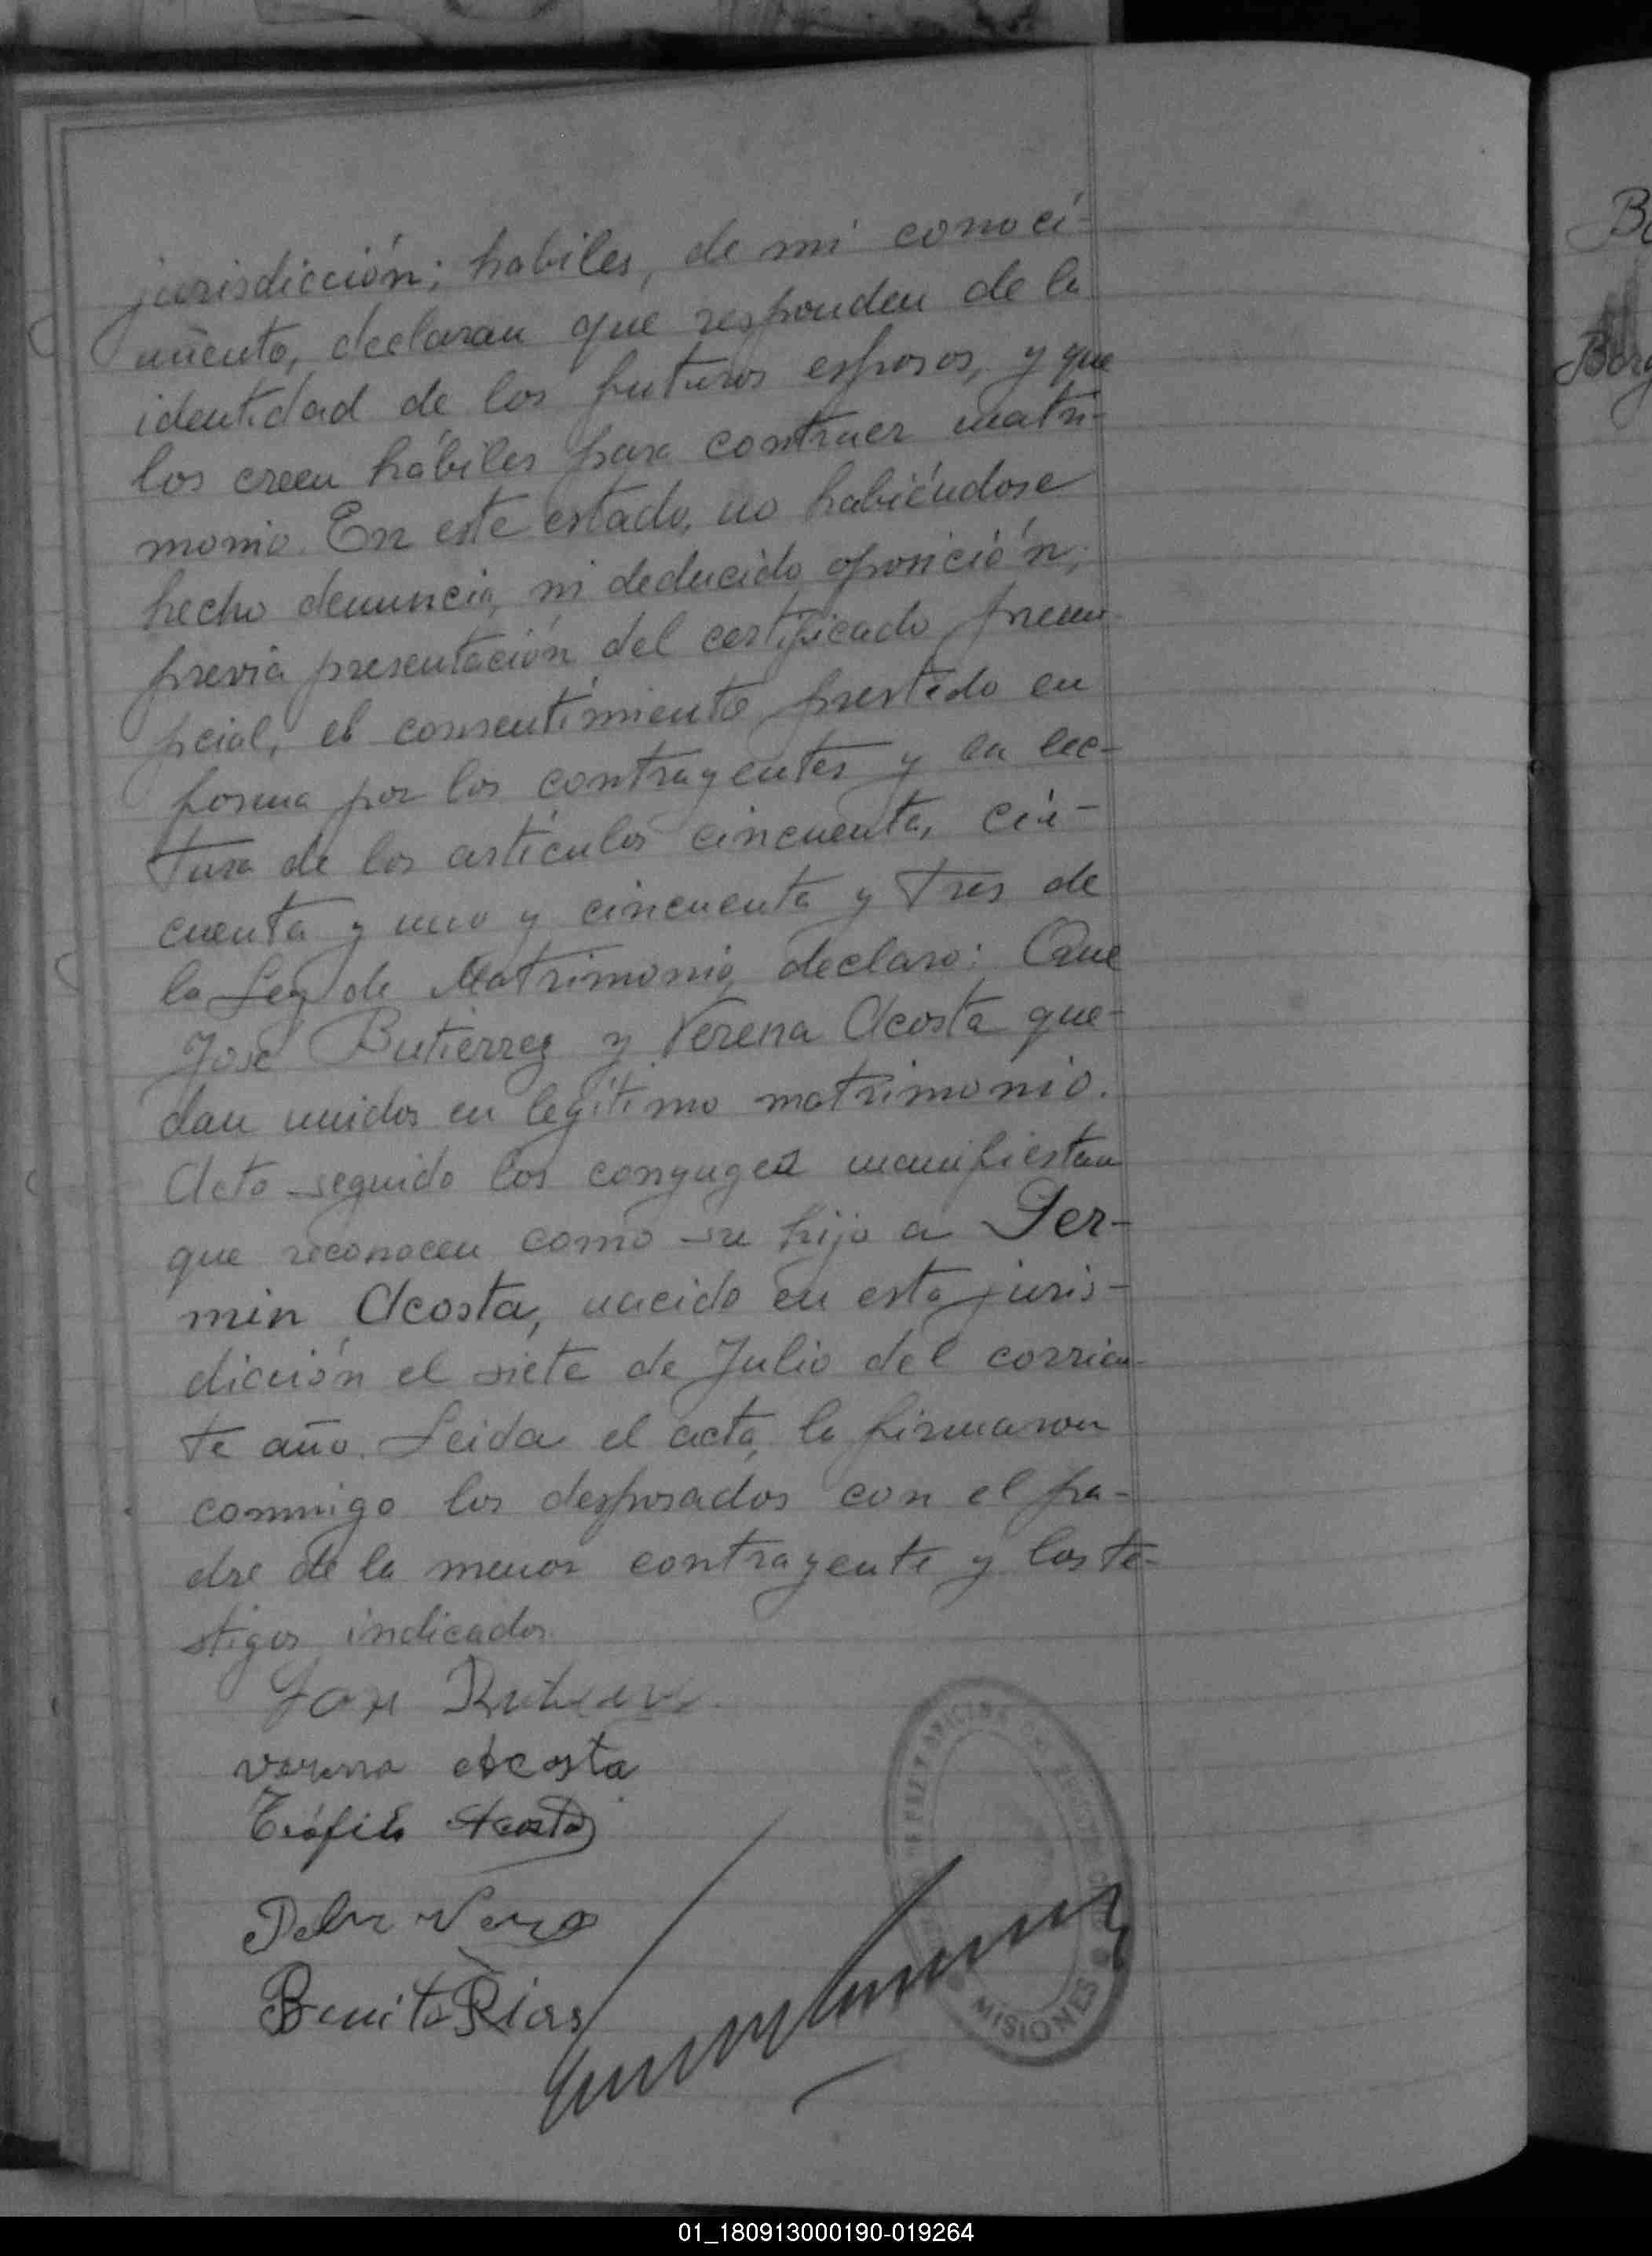 jurisdicción; habiles, de mi conoci-
miento, declaran que responden de la
identidad de los futuros esposos, y que
los creen hábiles para contraer matri-
monio. En este estado, no habiéndose
hecho denuncia, ni deducido oposición,
previa presentación del certificado prenu-
pcial, el consentimiento prestado en
forma por los contrayentes y la lec-
tura de los artículos cincuenta, cin-
cuenta y uno y cincuenta y tres de
la Ley de Matrimonio, declaro: Que
José Butierrez y Verena Acosta que-
dan unidos en legítimo matrimonio.
Acto seguido los conyuges manifiestan
que reconocen como su hijo a Fer-
min Acosta, nacido en esta juris-
dicción el siete de Julio del corrien-
te año. Leida el acta, la firmaron
conmigo los desposados con el pa-
dre de la menor contrayente y los te-
stigos indicados.
José
verena Acosta
Teófilo Acosta
Benito Rios
MISIONES
Bo
Borg
01_180913000190-019264